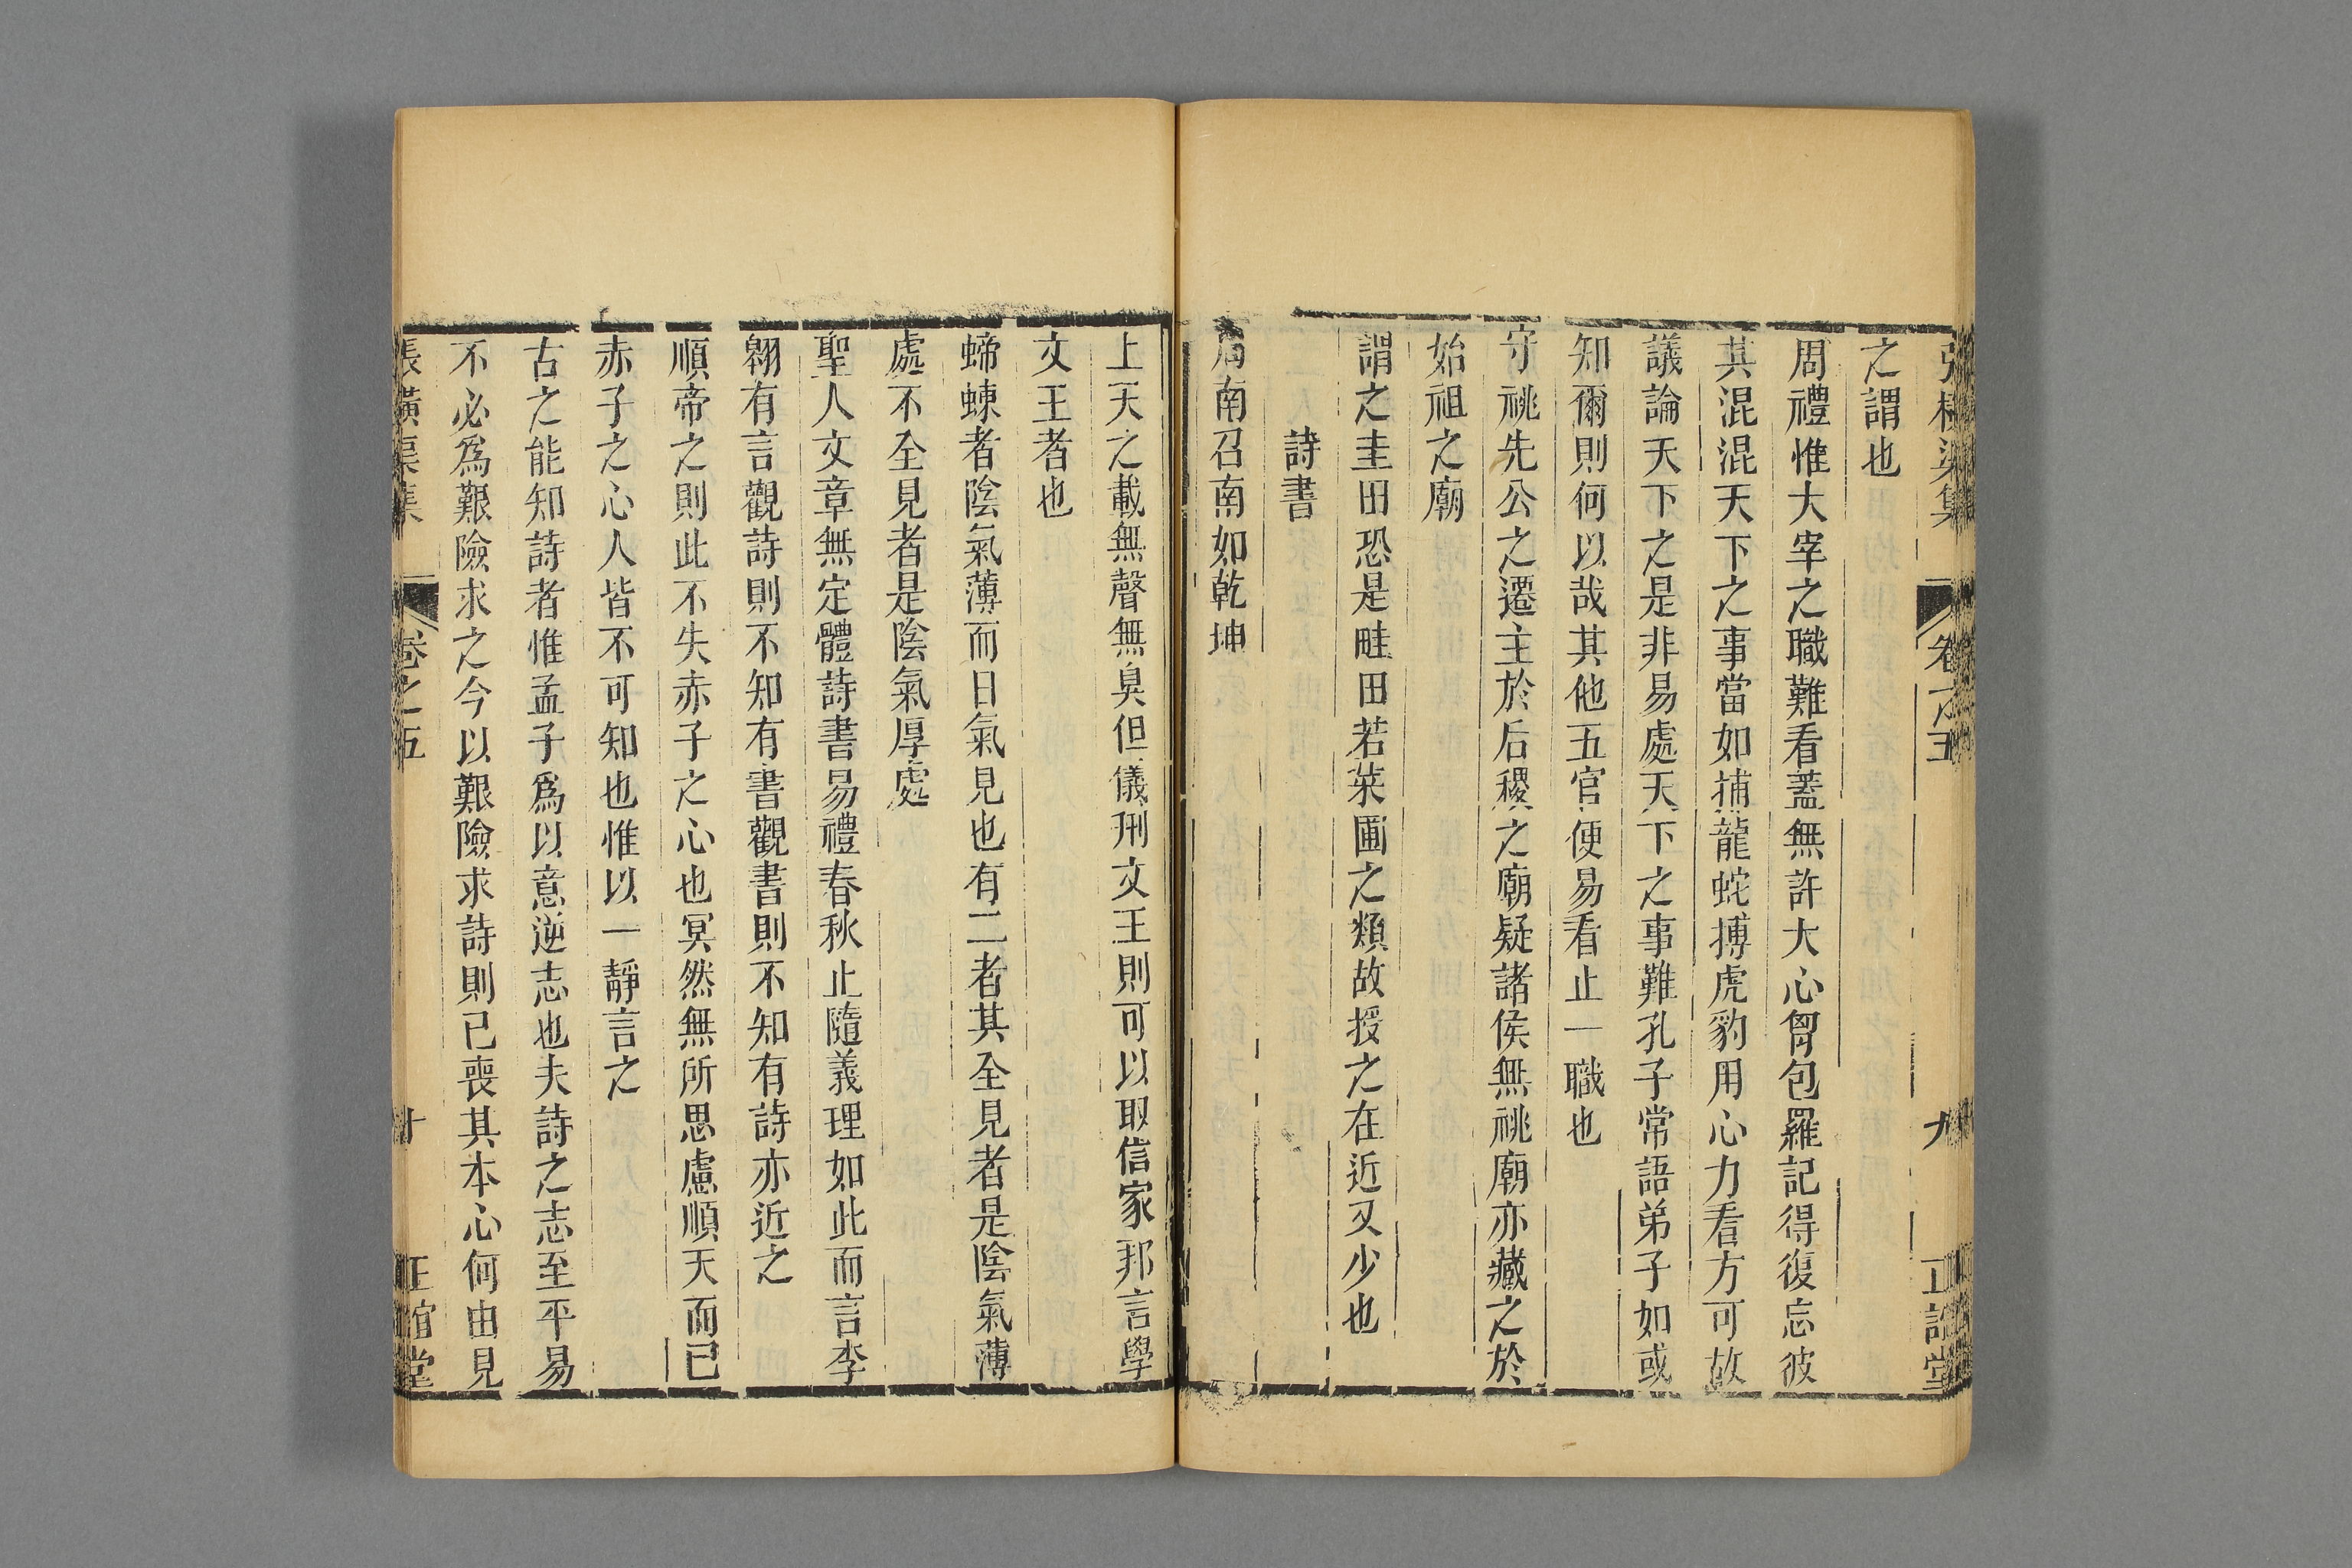 張橫渠集 卷之五 九 正誼堂
之謂也
周禮惟大宰之職難看蓋無許大心胷包羅記得復忘彼
其混混天下之事當如捕龍蛇搏虎豹用心力看方可故
議論天下之是非易處天下之事難孔子常語弟子如或
知爾則何以哉其他五官便易看止一職也
守祧先公之遷主於后稷之廟疑諸侯無祧廟亦藏之於
始祖之廟
謂之圭田恐是畦田若菜圃之類故授之在近又少也
詩書
周南召南如乾坤
上天之載無聲無臭但儀刑文王則可以取信家邦言學
文王者也
蝃蝀者陰氣薄而日氣見也有二者其全見者是陰氣薄
處不全見者是陰氣厚處
聖人文章無定體詩書易禮春秋止隨義理如此而言李
翱有言觀詩則不知有書觀書則不知有詩亦近之
順帝之則此不失赤子之心也冥然無所思慮順天而已
赤子之心人皆不可知也惟以一靜言之
古之能知詩者惟孟子爲以意逆志也夫詩之志至平易
不必爲艱險求之今以艱險求詩則已喪其本心何由見
張橫渠集 卷之五 十 正誼堂